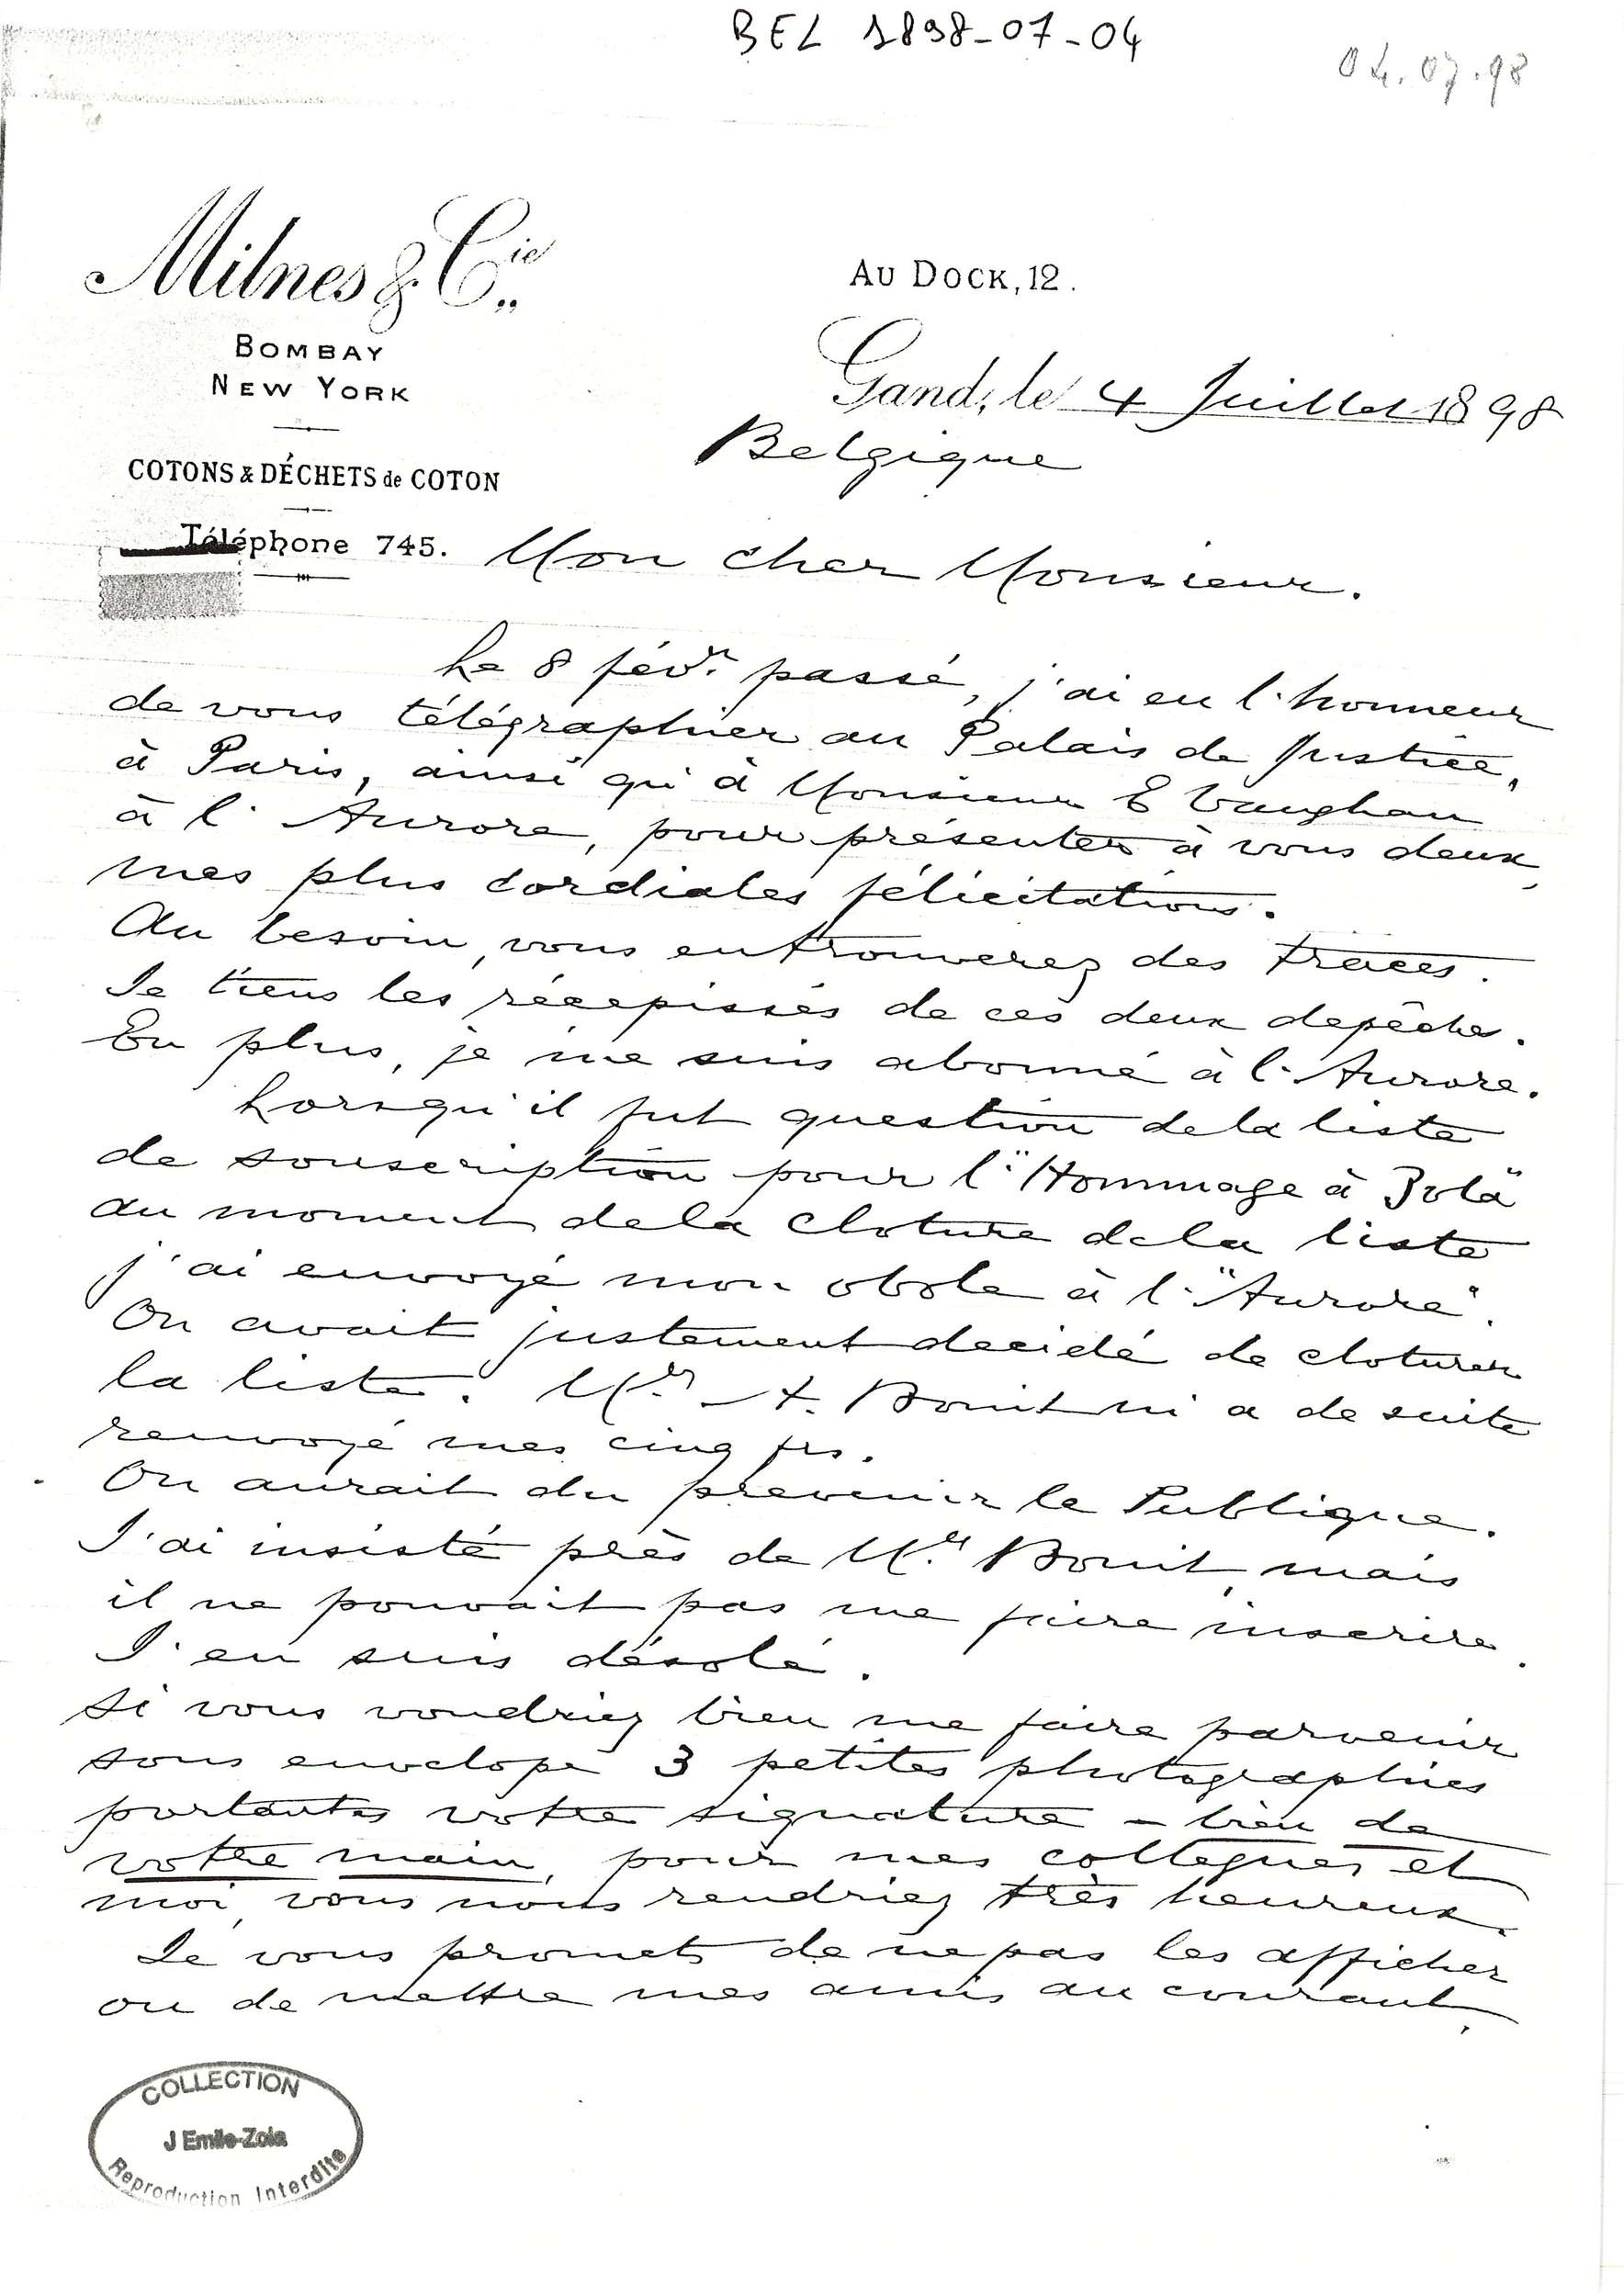 BEL 1898-07-04
04.07.98
Milnes & Cie
BOMBAY
NEW YORK
COTONS & DÉCHETS de COTON
Téléphone 745.
AU DOCK, 12.
Gand, le 4 Juillet 1898
Belgique
Mon cher Monsieur.
Le 8 févr. passé, j'ai eu l'honneur
de vous télégraphier au Palais de Justice,
à Paris, ainsi qu'à Monsieur E Vaughan
à l'Aurore, pour présenter à vous deux,
mes plus cordiales félicitations.
Au besoin, vous en trouverez des traces.
Je tiens les récepissés de ces deux depêches.
En plus, je me suis abonné à l'Aurore.
Lorsqu'il fut question de la liste
de souscription pour l'"Hommage à Zola"
au moment de la cloture de la liste
j'ai envoyé mon obole à l'"Aurore".
On avait justement decidé de cloturer
la liste. Mr. A. Bouit m'a de suite
renvoyé mes cinq frs.
On aurait du prevenir le Publique.
J'ai insisté près de Mr. Bouit, mais
il ne pouvait pas me faire inscrire.
J'en suis désolé.
Si vous voudriez bien me faire parvenir
sous envelope 3 petites photographies
portantes votre signature – bien de
votre main, pour mes collegues et
moi, vous nous rendriez très heureux.
Je vous promets de ne pas les afficher
ou de mettre mes amis au courant.
COLLECTION
J Emile-Zola
Reproduction Interdite